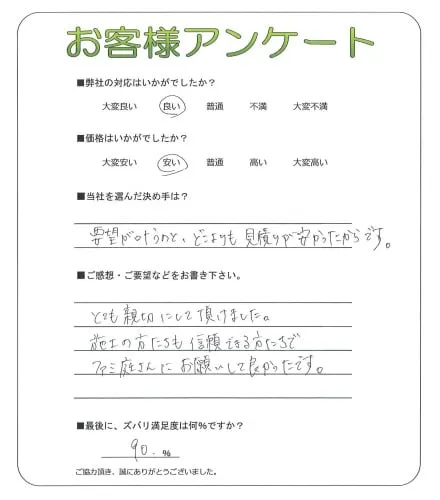 お客様アンケート
■弊社の対応はいかがでしたか？
大変良い 良い 普通 不満 大変不満
■価格はいかがでしたか？
大変安い 安い 普通 高い 大変高い
■当社を選んだ決め手は？
要望が叶うのと、どこよりも 見積りが安かったからです。
■ご感想・ご要望などをお書き下さい。
とても親切にして頂けました。
施工の方たちも信頼できる方たちで
ファミ庭さんにお願いして良かったです。
■最後に、ズバリ満足度は何％ですか？
90. ％
ご協力頂き、誠にありがとうございました。